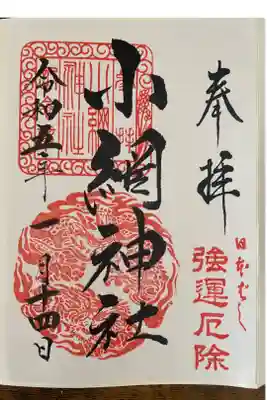 奉拝
日本ばし
強運厄除
小網神社
令和五年一月十四日